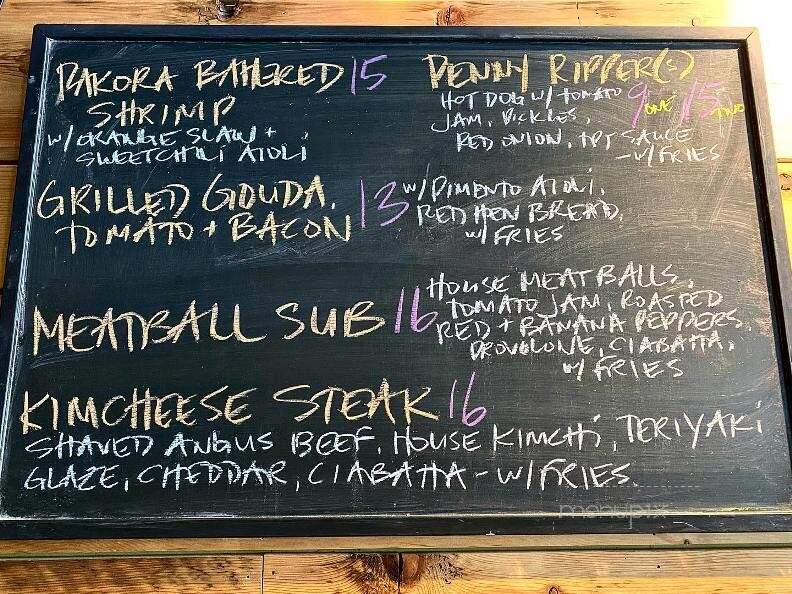 PAKORA BATTERED 15
SHRIMP
W/ORANGE SLAW +
SWEETCHILI AIOLI
PENNY RIPPER(S)
HOT DOG W/ TOMATO 9 ONE 15 TWO
JAM, PICKLES,
RED ONION, TPT SAUCE
-W/FRIES
GRILLED GOUDA,
TOMATO + BACON 13
W/PIMENTO AIOLI,
RED HEN BREAD,
W/FRIES
MEATBALL SUB 16
HOUSE MEATBALLS,
TOMATO JAM, ROASTED
RED + BANANA PEPPERS,
PROVOLONE, CIABATTA,
W/ FRIES
KIMCHEESE STEAK 16
SHAVED ANGUS BEEF, HOUSE KIMCHI, TERIYAKI
GLAZE, CHEDDAR, CIABATTA - W/FRIES